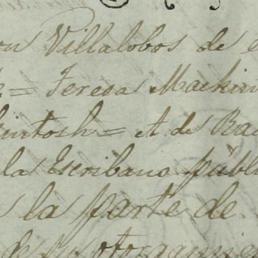 on Villalobos de
= Teresa Mackin
kintosh = A. de Ba
la Escribano públ
la parte de
de su otorgamie